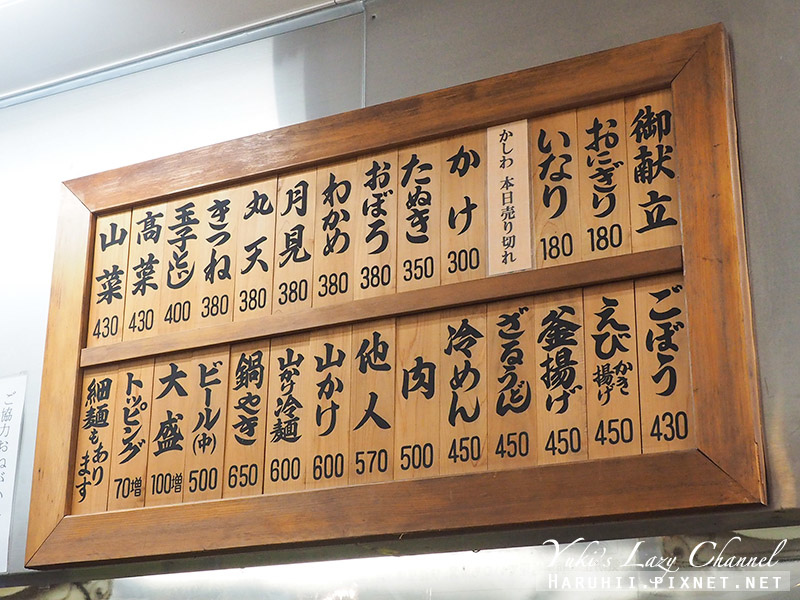 御献立
おにぎり 180
いなり 180
かしわ 本日売り切れ
かけ 300
たぬき 350
おぼろ 380
わかめ 380
月見 380
丸天 380
きつね 380
玉子とじ 400
高菜 430
山菜 430
ごぼう 430
えびかき揚げ 450
釜揚げ 450
ざるうどん 450
冷めん 450
肉 500
他人 570
山かけ 600
山かけ冷麺 600
鍋やき 650
ビール(中) 500
大盛 100増
トッピング 70増
細麺もあります
ご協力おねがい
Yuki's Lazy Channel
Haruhii.pixnet.net